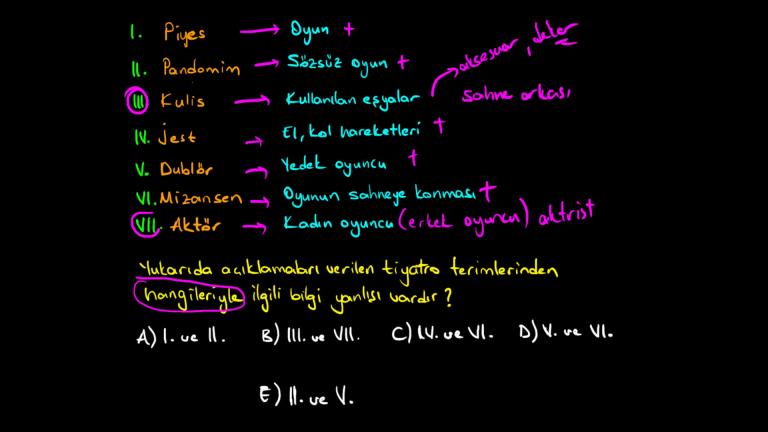 I. Piyes → Oyun +
II. Pandomim → Sözsüz oyun +
aksesuar, dekor
III Kulis → Kullanılan eşyalar
sahne arkası
IV. Jest → El, kol hareketleri +
V. Dublör → Yedek oyuncu +
VI. Mizansen → Oyunun sahneye konması +
VII. Aktör → Kadın oyuncu (erkek oyuncu) aktrist
Yukarıda açıklamaları verilen tiyatro terimlerinden
hangileriyle ilgili bilgi yanlışı vardır?
A) I. ve II. B) III. ve VII. C) IV. ve VI. D) V. ve VI.
E) II. ve V.